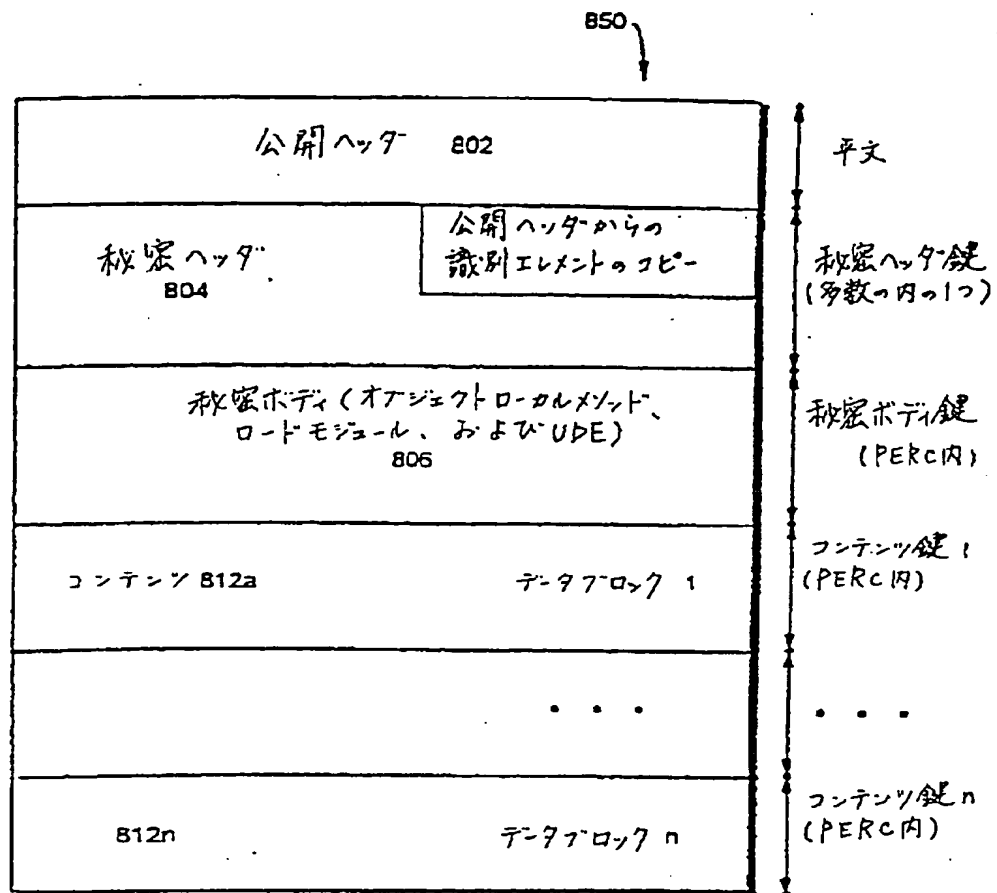 850
公開ヘッダ 802
平文
秘密ヘッダ
804
公開ヘッダからの
識別エレメントのコピー
秘密ヘッダ鍵
(多数の内の1つ)
秘密ボディ(オブジェクトローカルメソッド、
ロードモジュール、およびUDE)
806
秘密ボディ鍵
(PERC内)
コンテンツ 812a
データブロック 1
コンテンツ鍵 1
(PERC内)
・・・
・・・
812n
データブロック n
コンテンツ鍵 n
(PERC内)